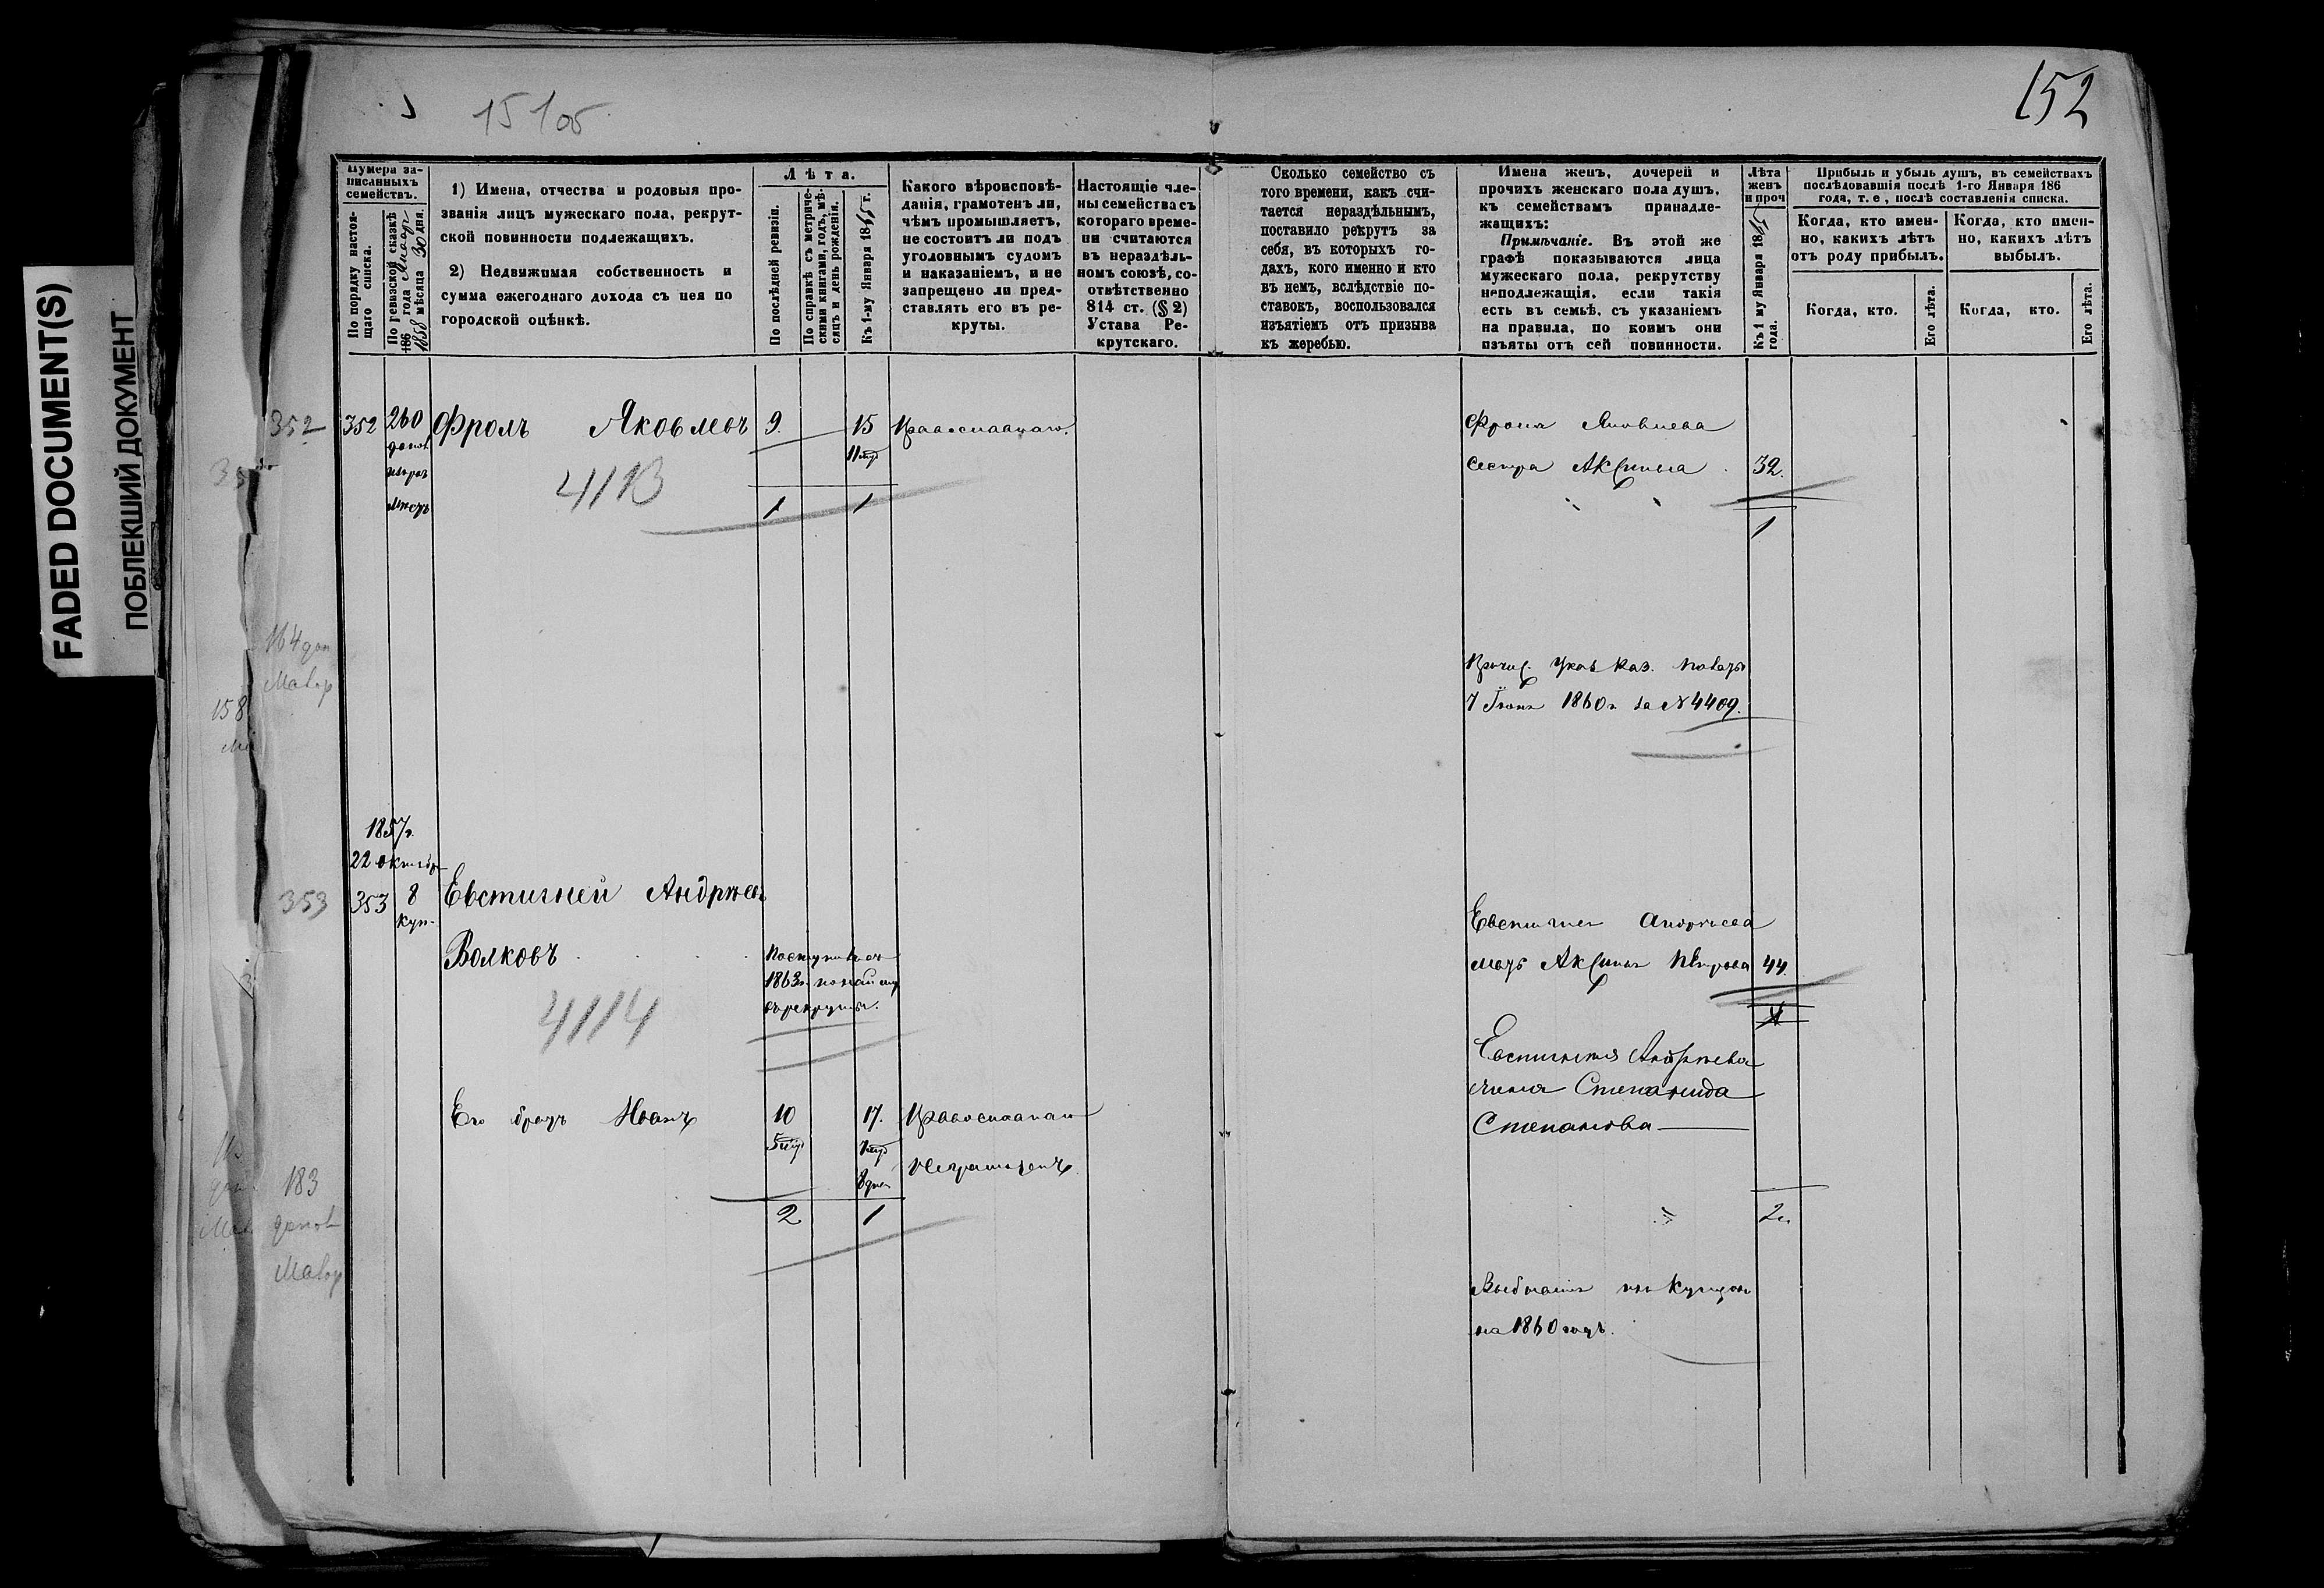 FADED DOCUMENT(S)
ПОБЛЕКШИЙ ДОКУМЕНТ
151 об
152
Нумера записанныхъ семействъ.
По порядку настоящаго списка.
По ревизской сказкѣ 186 года 1858 мѣсяца 30 дня.
1) Имена, отчества и родовыя прозванія лицъ мужескаго пола, рекрутской повинности подлежащихъ.
2) Недвижимая собственность и сумма ежегоднаго дохода съ нея по городской оцѣнкѣ.
Лѣта.
По послѣдней ревизіи.
По справкѣ съ метрическими книгами, годъ, мѣсяцъ и день рожденія.
Къ 1-му Января 18 г.
Какого вѣроисповѣданія, грамотенъ ли, чѣмъ промышляетъ, не состоитъ ли подъ уголовнымъ судомъ и наказаніемъ, и не запрещено ли представлять его въ рекруты.
Настоящіе члены семейства съ котораго времени считаются въ нераздѣльномъ союзѣ, соотвѣтственно 814 ст. (§ 2) Устава Рекрутскаго.
Сколько семейство съ того времени, какъ считается нераздѣльнымъ, поставило рекрутъ за себя, въ которыхъ годахъ, кого именно и кто въ немъ, вслѣдствіе поставокъ, воспользовался изъятіемъ отъ призыва къ жеребью.
Имена женъ, дочерей и прочихъ женскаго пола душъ, къ семействамъ принадлежащихъ:
Примѣчаніе. Въ этой же графѣ показываются лица мужескаго пола, рекрутству неподлежащія, если такія есть въ семьѣ, съ указаніемъ на правила, по коимъ они изъяты отъ сей повинности.
Лѣта женъ и проч
Къ 1 му Января 18 года.
Прибыль и убыль душъ, въ семействахъ послѣдовавшія послѣ 1-го Января 186 года, т. е, послѣ составленія списка.
Когда, кто именно, какихъ лѣтъ отъ роду прибылъ.
Когда, кто именно, какихъ лѣтъ выбылъ.
Когда, кто.
Его лѣта.
Когда, кто.
Его лѣта.
352 352 260 Фролъ Яковлевъ 9. 15 Православнаго.
допол
4113
1 1
Фрола Яковлева
сестра Аксинья 32.
1
164 доп
158
Причис. Указ Каз. Палаты
7 Іюня 1860 г за № 4409.
1857 г.
22 октября
353 353 8 Евстигней Андрѣевъ
куп.
Волковъ
Поступилъ
1863 г. по найму
въ рекруты.
4114
Евстигнея Андрѣева
мать Аксинья Петрова 44.
Евстигнѣя Андрѣева
жена Степанида
Степанова
Его братъ Иванъ 10 17. Православнаго
Неграмотенъ.
2 1
2.
183
допол
Выбывшія изъ Купцовъ
на 1860 годъ.